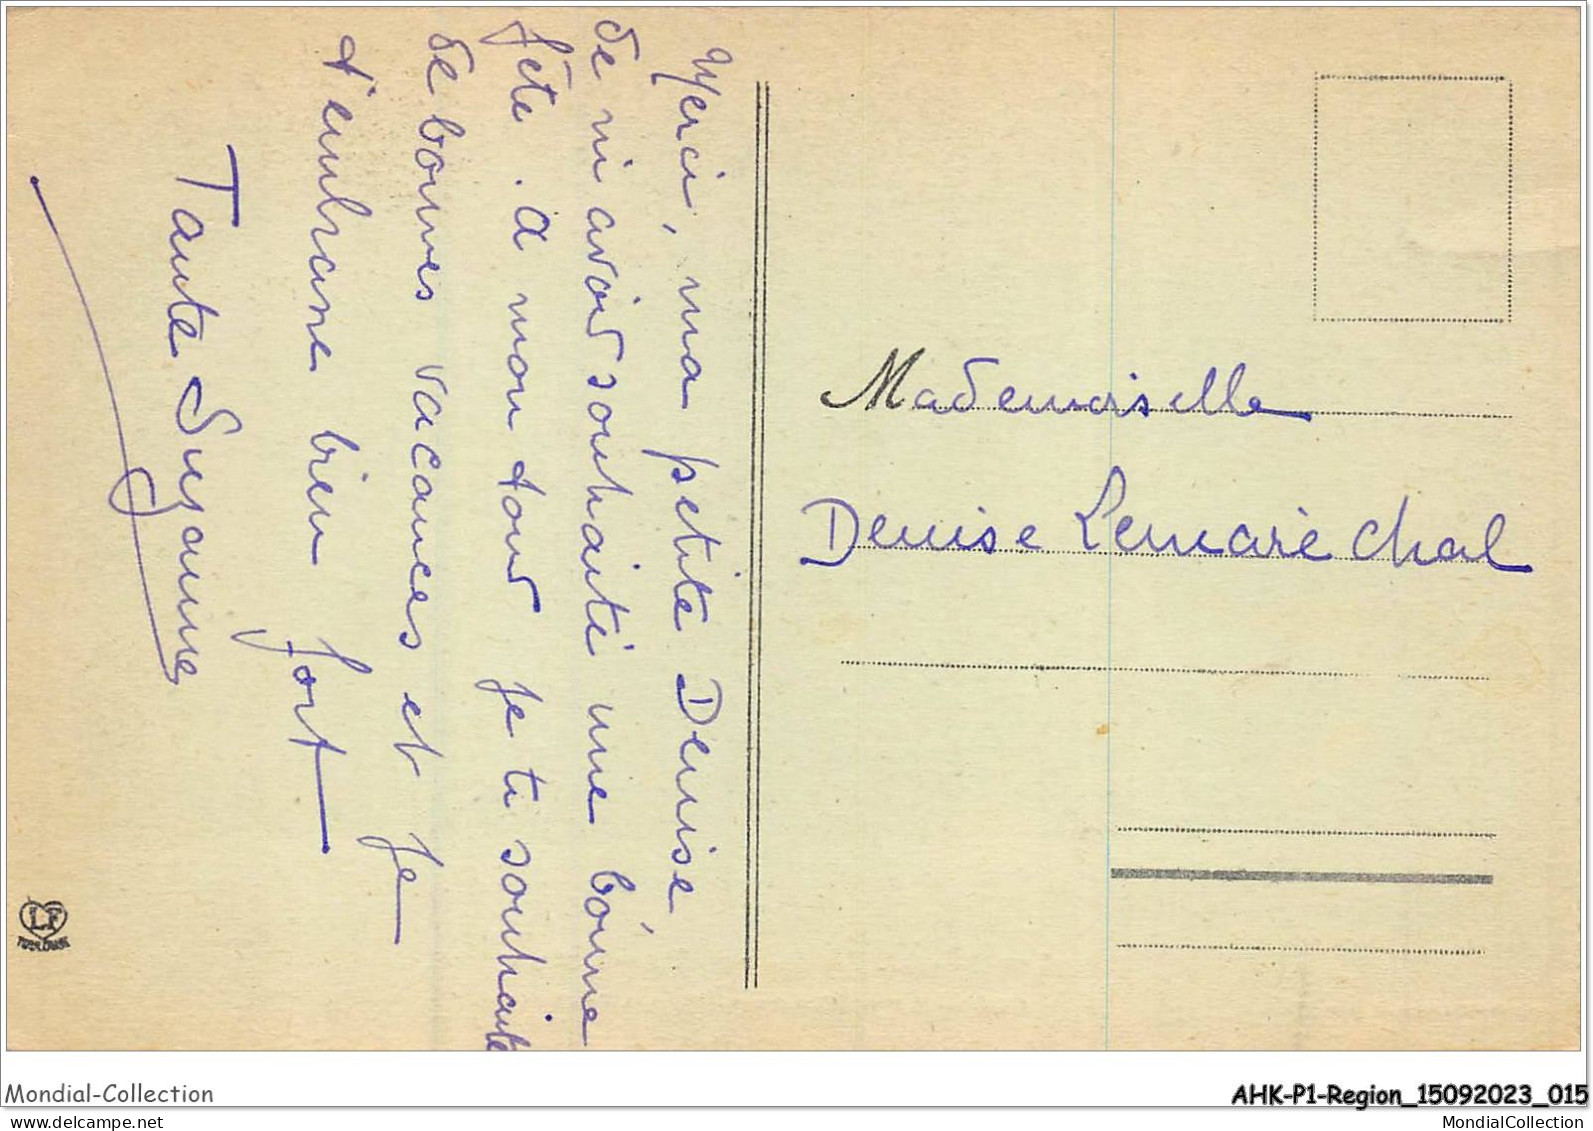 Merci, ma petite Denise
de m'avoir souhaité une bonne
fête. A mon tour je te souhaite
de bonnes vacances et je
t'embrasse bien fort
Tante Suzanne
Mademoiselle
Denise Lemaréchal
LF
TOULOUSE
Mondial-Collection
AHK-P1-Region_15092023_015
www.delcampe.net
MondialCollection